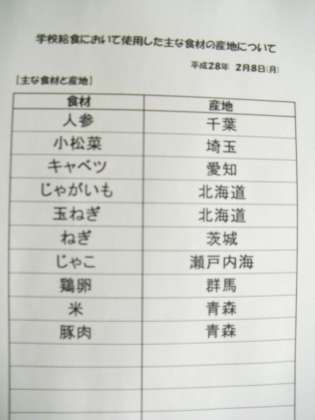 学校給食において使用した主な食材の産地について
平成28年 2月8日(月)
[主な食材と産地]
食材 産地
人参 千葉
小松菜 埼玉
キャベツ 愛知
じゃがいも 北海道
玉ねぎ 北海道
ねぎ 茨城
じゃこ 瀬戸内海
鶏卵 群馬
米 青森
豚肉 青森